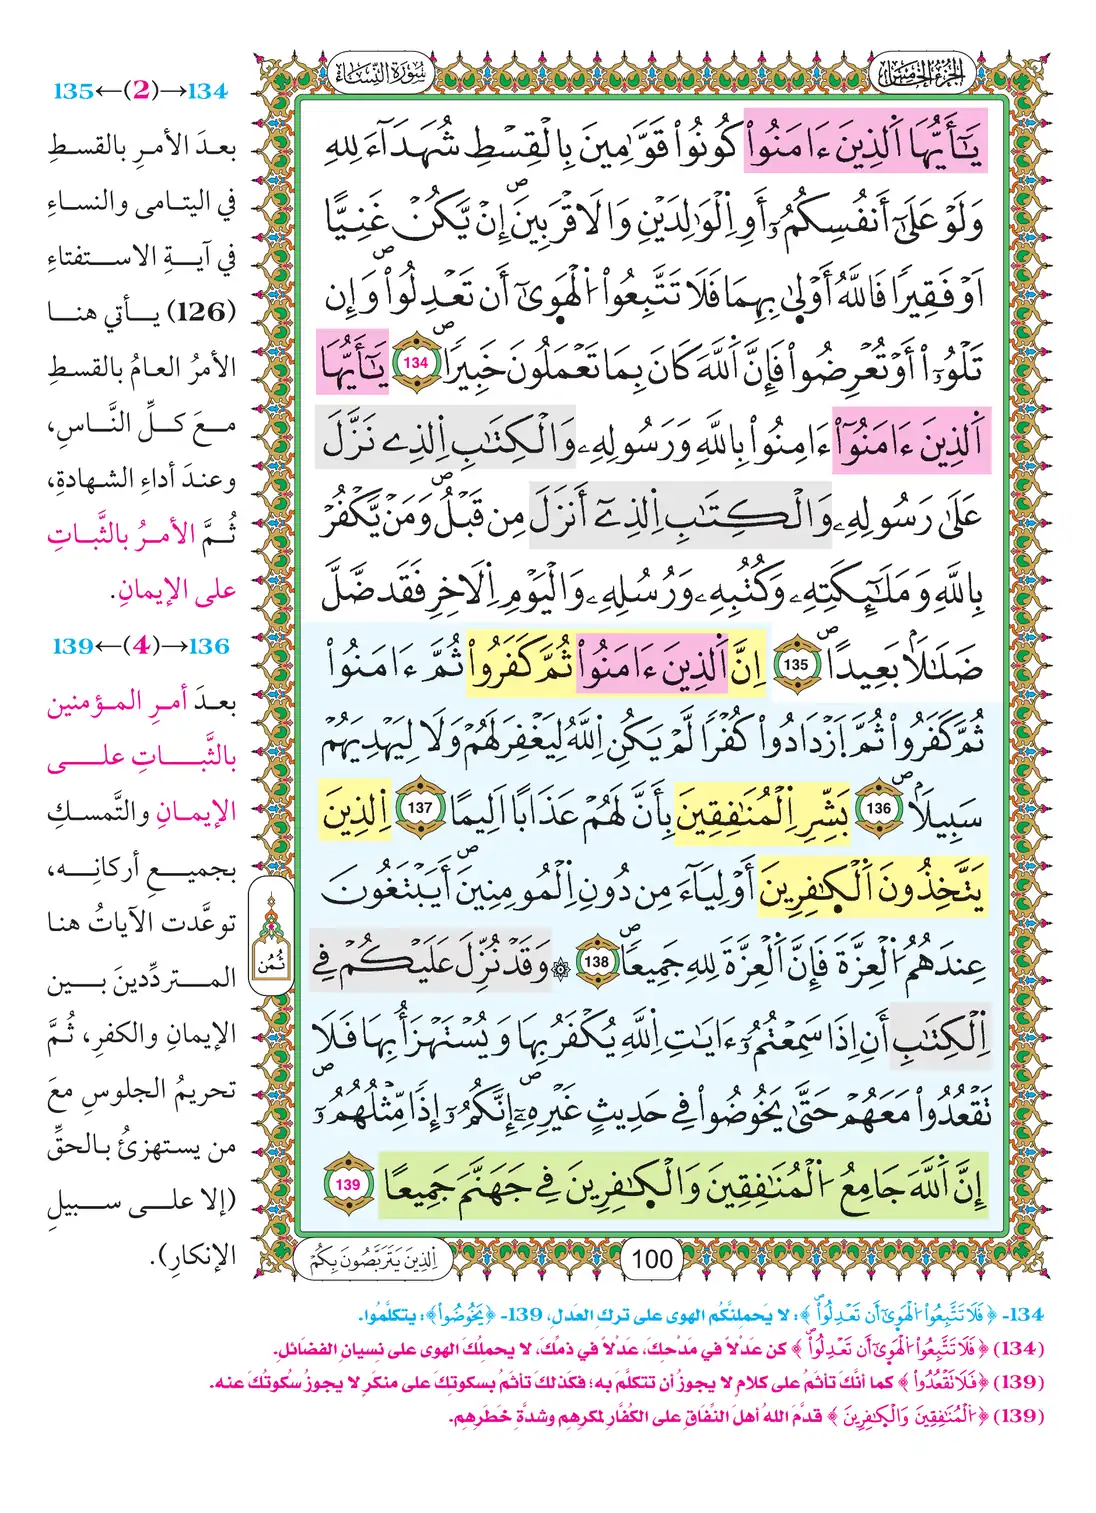 الجزء الخامس
سورة النساء
يَٰٓأَيُّهَا اَ۬لذِينَ ءَامَنُواْ كُونُواْ قَوَّٰمِينَ بِالْقِسْطِ شُهَدَآءَ لِلهِ
وَلَوْ عَلَىٰٓ أَنفُسِكُمُۥٓ أَوِ اِ۬لْوَٰلِدَيْنِ وَالَاقْرَبِينَۖ إِنْ يَّكُنْ غَنِيًّا
اَوْ فَقِيرًا فَاللَّهُ أَوْلَىٰ بِهِمَاۖ فَلَا تَتَّبِعُواْ اُ۬لْهَوَىٰٓ أَن تَعْدِلُواْۖ وَإِن
تَلْوُۥٓاْ أَوْ تُعْرِضُواْ فَإِنَّ اَ۬للَّهَ كَانَ بِمَا تَعْمَلُونَ خَبِيرًاۖ 134 يَٰٓأَيُّهَا
اَ۬لذِينَ ءَامَنُوٓاْ ءَامِنُواْ بِاللَّهِ وَرَسُولِهِۦ وَالْكِتَٰبِ اِ۬لذِے نَزَّلَ
عَلَىٰ رَسُولِهِۦ وَالْكِتَٰبِ اِ۬لذِےٓ أَنزَلَ مِن قَبْلُۖ وَمَنْ يَّكْفُرْ
بِاللَّهِ وَمَلَٰٓئِكَتِهِۦ وَكُتُبِهِۦ وَرُسُلِهِۦ وَالْيَوْمِ اِ۬لَاخِرِ فَقَد ضَّلَّ
ضَلَٰلَاۢ بَعِيدًاۖ 135 اِنَّ اَ۬لذِينَ ءَامَنُواْ ثُمَّ كَفَرُواْ ثُمَّ ءَامَنُواْ
ثُمَّ كَفَرُواْ ثُمَّ اَ۪زْدَادُواْ كُفْرًا لَّمْ يَكُنِ اِ۬للَّهُ لِيَغْفِرَ لَهُمْ وَلَا لِيَهْدِيَهُمْ
سَبِيلَاۢۖ 136 بَشِّرِ اِ۬لْمُنَٰفِقِينَ بِأَنَّ لَهُمْ عَذَابًا اَلِيمًا 137 اِ۬لذِينَ
يَتَّخِذُونَ اَ۬لْكٰ۪فِرِينَ أَوْلِيَآءَ مِن دُونِ اِ۬لْمُومِنِينَۖ أَيَبْتَغُونَ
عِندَهُمُ اُ۬لْعِزَّةَ فَإِنَّ اَ۬لْعِزَّةَ لِلهِ جَمِيعًاۖ 138 ۞ وَقَدْ نُزِّلَ عَلَيْكُمْ فِے
اِ۬لْكِتَٰبِ أَنِ اِذَا سَمِعْتُمُۥٓ ءَايَٰتِ اِ۬للَّهِ يُكْفَرُ بِهَا وَيُسْتَهْزَأُ بِهَا فَلَا
تَقْعُدُواْ مَعَهُمْ حَتَّىٰ يَخُوضُواْ فِے حَدِيثٍ غَيْرِهِۦٓۖ إِنَّكُمُۥٓ إِذًا مِّثْلُهُمُۥٓۖ
إِنَّ اَ۬للَّهَ جَامِعُ اُ۬لْمُنَٰفِقِينَ وَالْكٰ۪فِرِينَ فِے جَهَنَّمَ جَمِيعًا 139
ثُمُن
100
اِ۬لذِينَ يَتَرَبَّصُونَ بِكُمْ
134→(2)←135
بعدَ الأمرِ بالقسطِ
في اليتامى والنساءِ
في آيةِ الاستفتاءِ
(126) يأتي هنا
الأمرُ العامُ بالقسطِ
معَ كلِّ النَّاسِ،
وعندَ أداءِ الشهادةِ،
ثُمَّ الأمرُ بالثَّباتِ
على الإيمانِ.
136→(4)←139
بعدَ أمرِ المؤمنين
بالثَّباتِ على
الإيمانِ والتَّمسكِ
بجميعِ أركانِه،
توعَّدت الآياتُ هنا
المتردِّدينَ بين
الإيمانِ والكفرِ، ثُمَّ
تحريمُ الجلوسِ معَ
من يستهزئُ بالحقِّ
(إلا على سبيلِ
الإنكارِ).
134- ﴿فَلَا تَتَّبِعُواْ اُ۬لْهَوَىٰٓ أَن تَعْدِلُواْۖ﴾: لا يَحملنَّكُم الهوى على تركِ العَدلِ، 139- ﴿يَخُوضُواْ﴾: يتكلَّمُوا.
(134) ﴿فَلَا تَتَّبِعُواْ اُ۬لْهَوَىٰٓ أَن تَعْدِلُواْۖ﴾ كن عَدْلاً في مَدْحِكَ، عَدْلاً في ذمِّكَ، لا يحملِكَ الهوى على نِسيانِ الفضائلِ.
(139) ﴿فَلَا تَقْعُدُواْ﴾ كما أنَّكَ تأثمُ على كلامٍ لا يجوزُ أن تتكلَّمَ به؛ فكذلكَ تأثمُ بسكوتِكَ على منكَرٍ لا يجوزُ سُكوتُكَ عنه.
(139) ﴿اُ۬لْمُنَٰفِقِينَ وَالْكٰ۪فِرِينَ﴾ قدَّمَ اللهُ أهلَ النِّفاقِ على الكفَّارِ لمكرِهِم وشدَّةِ خَطَرِهِم.